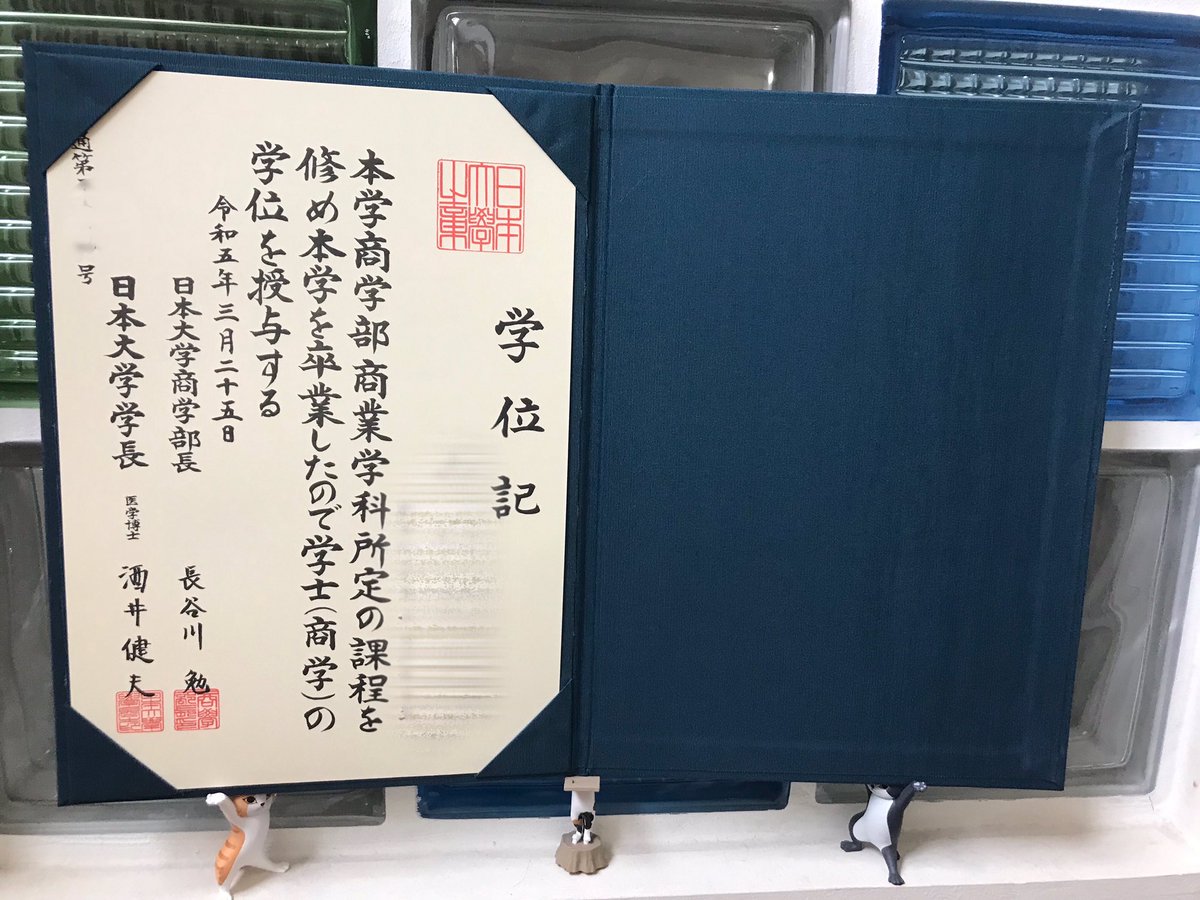 学位記
日本大學之章
本学商学部商業学科所定の課程を
修め本学を卒業したので学士(商学)の
学位を授与する
令和五年三月二十五日
日本大学商学部長 長谷川 勉
日本大学学長 医学博士 酒井健夫
通第 号